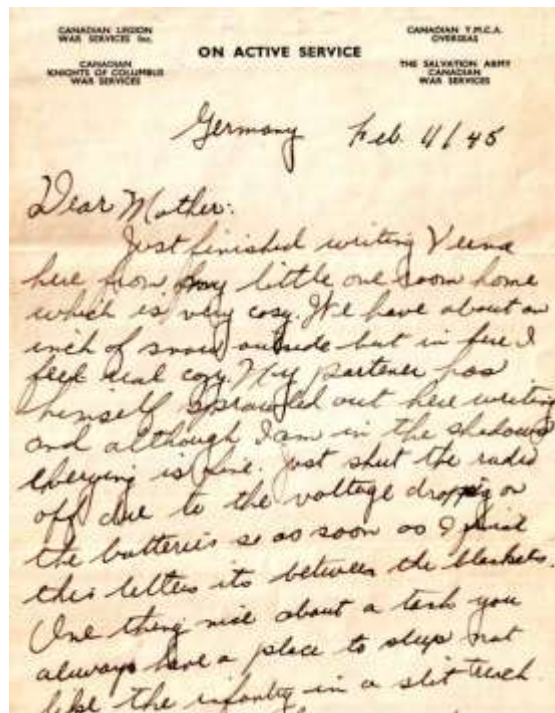 CANADIAN LEGION
WAR SERVICES Inc.
CANADIAN
KNIGHTS OF COLUMBUS
WAR SERVICES
ON ACTIVE SERVICE
CANADIAN Y.M.C.A.
OVERSEAS
THE SALVATION ARMY
CANADIAN
WAR SERVICES
Germany Feb. 4/45
Dear Mother:
Just finished writing
here from my little one room home
which is very cosy. We have about an
inch of snow outside but in here I
feel real cozy. My partener has
himself sprawled out here writing
and although I am in the shadows
everying is fine. Just shut the radio
off due to the voltage dropping on
the batteries so as soon as I finish
this letter its between the blankets.
One thing nice about a tank you
always have a place to sleep not
like the infantry in a slit trench